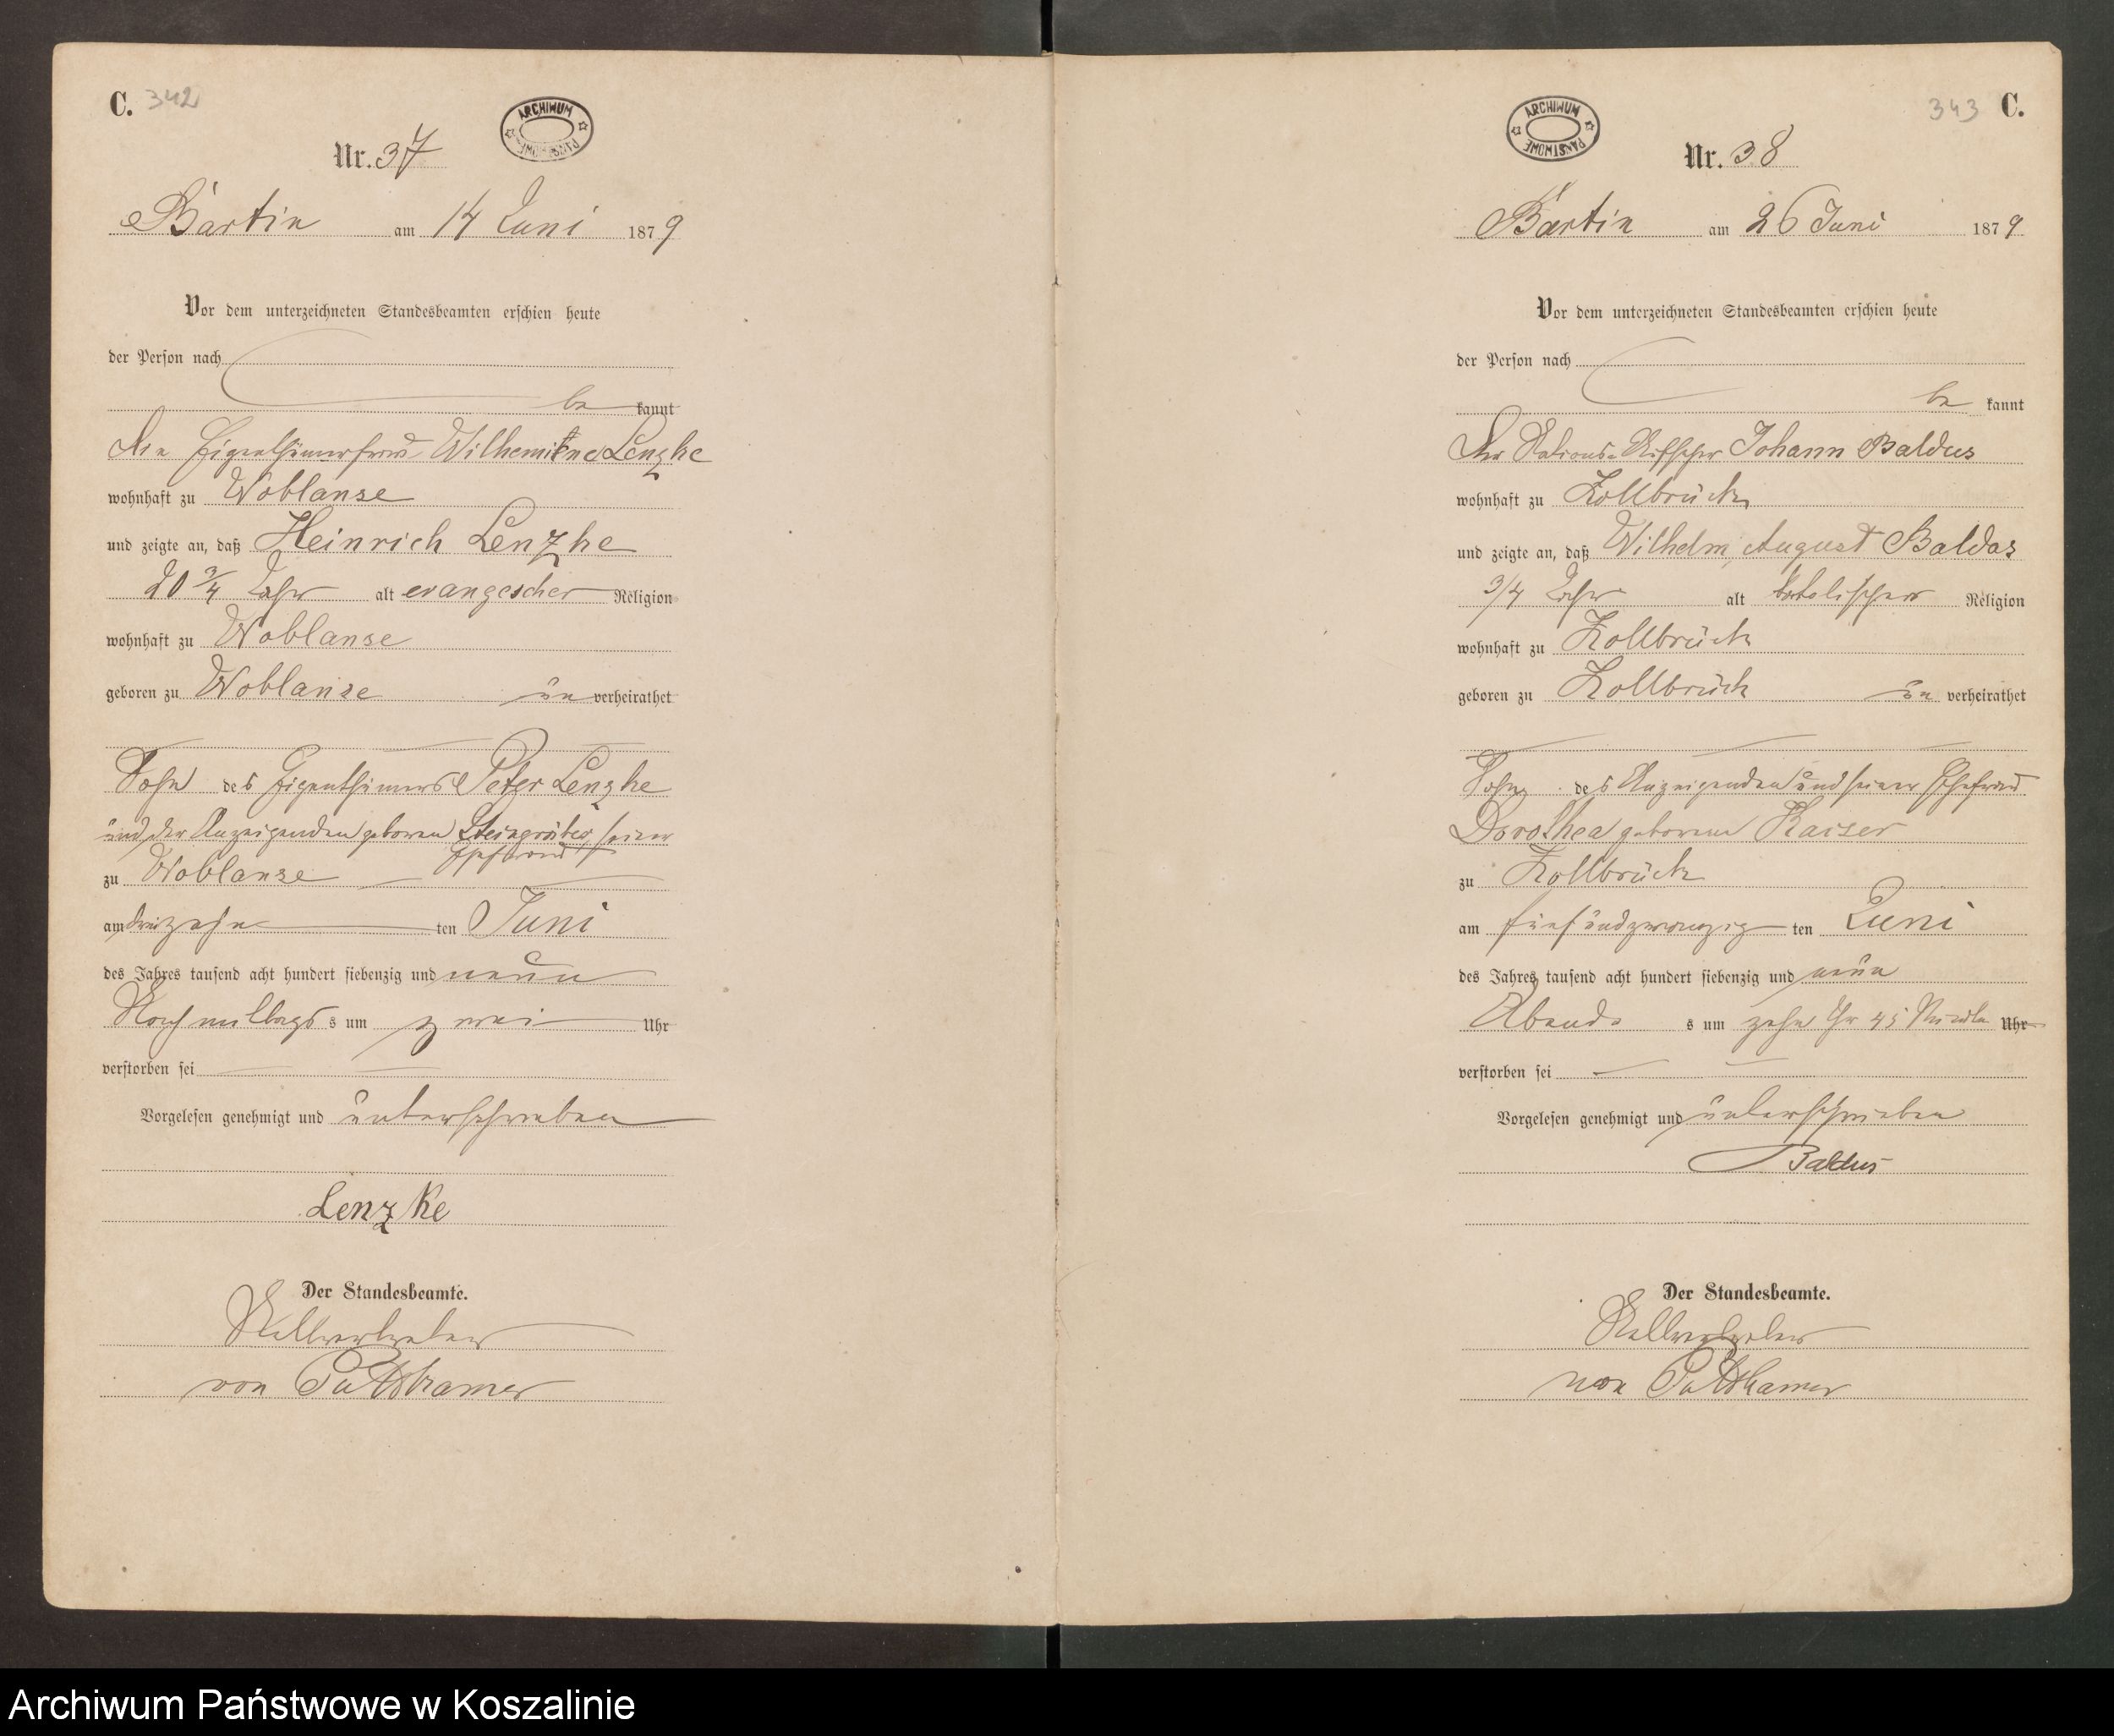 C. 342
ARCHIWUM PAŃSTWOWE
Nr. 37
Bartin am 14 Juni 1879
Vor dem unterzeichneten Standesbeamten erschien heute
der Person nach
be kannt
die Eigenthümerfrau Wilhemine Lenzke
wohnhaft zu Woblanse
und zeigte an, daß Heinrich Lenzke
20 3/4 Jahr alt evangescher Religion
wohnhaft zu Woblanse
geboren zu Woblanse un verheirathet
Sohn des Eigenthümers Peter Lenzke
und der Anzeigenden geboren Steingräber seiner
Ehefrau
zu Woblanse
am dreizehn ten Juni
des Jahres tausend acht hundert siebenzig und neun
Nachmittags s um zwei Uhr
verstorben sei
Vorgelesen genehmigt und unterschrieben
Lenzke
Der Standesbeamte.
Stellvertreter
von Puttkamer
343 C.
ARCHIWUM PAŃSTWOWE
Nr. 38
Bartin am 26 Juni 1879
Vor dem unterzeichneten Standesbeamten erschien heute
der Person nach
be kannt
Der Johann Baldus
wohnhaft zu Zollbrück
und zeigte an, daß Wilhelm August Baldas
3/4 Jahr alt katolischer Religion
wohnhaft zu Zollbrück
geboren zu Zollbrück un verheirathet
Sohn des Anzeigenden und seiner Ehefrau
Dorothea geborene Kaiser
zu Zollbrück
am fünfundzwanzig ten Juni
des Jahres tausend acht hundert siebenzig und neun
Abends s um zehn Uhr 45 Minuten Uhr
verstorben sei
Vorgelesen genehmigt und unterschrieben
Baldus
Der Standesbeamte.
Stellvertreter
von Puttkamer
Archiwum Państwowe w Koszalinie